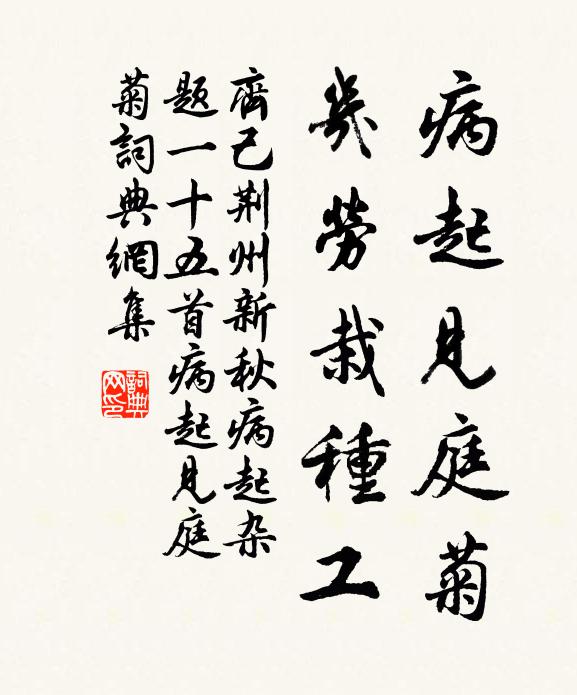 病起見庭菊
幾勞栽種工
齊己荆州新秋病起杂
題一十五首病起見庭
菊詞典網集
詞典
网印